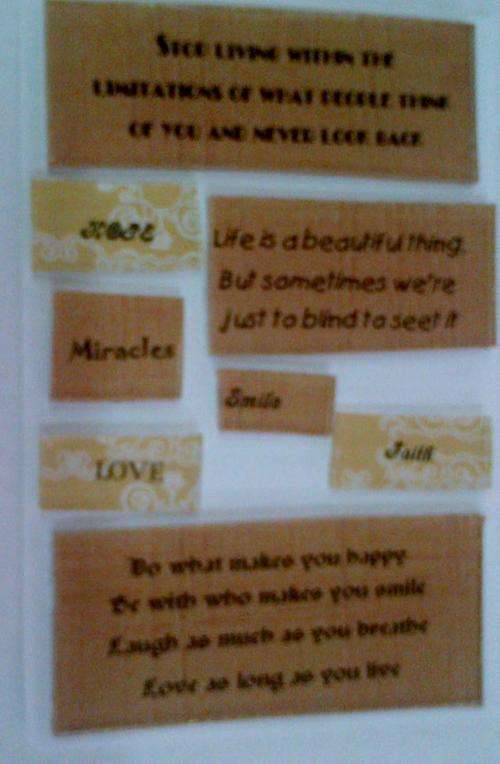 STOP LIVING WITHIN THE
LIMITATIONS OF WHAT PEOPLE THINK
OF YOU AND NEVER LOOK BACK
HOPE
Life is a beautiful thing.
But sometimes we're
just to blind to seet it
Miracles
Smile
Faith
LOVE
Do what makes you happy
Be with who makes you smile
Laugh as much as you breathe
Love as long as you live